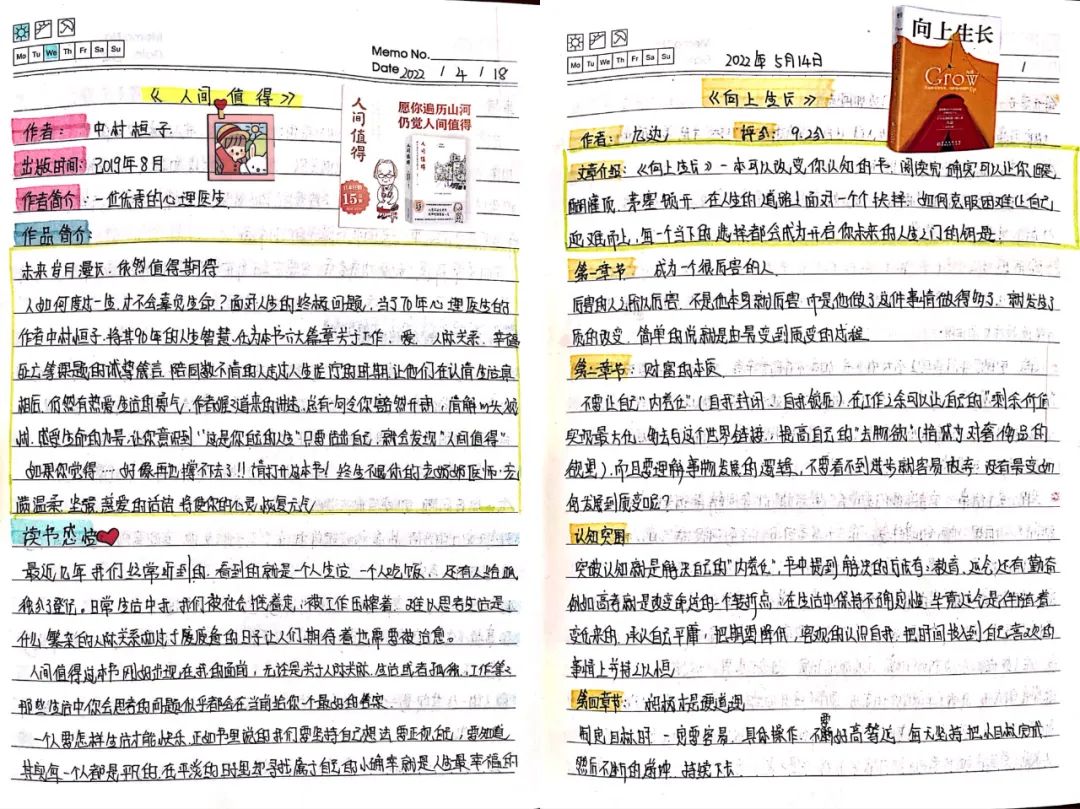 Mo Tu We Th Fr Sa Su
Memo No.
Date 2022 / 4 / 18
《人间值得》
作者: 中村恒子
出版时间: 2019年8月
作者简介: 一位优秀的心理医生
作品简介:
人间值得
愿你遍历山河
仍觉人间值得
未来岁月漫长, 依然值得期待
人如何度过一生, 才不会辜负生命? 面对人生的终极问题, 当了70年心理医生的
作者中村恒子, 将其90年的人生智慧, 化为本书六大篇章关于工作、爱、人际关系、幸福
相后, 仍然有热爱生活的勇气, 作者娓娓道来的讲述, 总有一句令你豁然开朗,
感受生命的力量, 让你意识到"这是你自己的人生"只要活出自己, 就会发现"人间值得"
如果你觉得…好像再也撑不下去了!! 请打开这本书!
满温柔、坚强、慈爱的话语, 将使你的心灵恢复元气
读书感悟
最近几年我们经常听到的、看到的就是一个人生活, 一个人吃饭,
日常生活中我, 我们被社会推着走, 被工作压榨着, 难以思考生活是
什么, 繁杂的人际关系
人间值得这本书刚好出现在我的面前, 无论是关于人际关系、生活或者孤独、工作等等
那些生活中你会思考的问题似乎都会在当前给你一个最好的答案
一个人要怎样生活才能快乐, 正如书里说的我们要坚持自己想法, 要正视自己, 要知道
其实每一个人都是平凡的, 在平淡的日子里却寻找属于自己的小确幸就是人生最幸福的
Mo Tu We Th Fr Sa Su
2022年5月14日
1
向上生长
Grow
《向上生长》
作者: 九边 评分: 9.2分
文章介绍:《向上生长》一本可以改变你认知的书, 阅读完确实可以让你醍
醐灌顶, 茅塞顿开, 在人生的道路上面对一个个抉择, 如何克服困难让自己
迎难而上, 每一个当下的选择都会成为开启你未来的人生之门的钥匙
第一章节: 成为一个很厉害的人
厉害的人之所以厉害, 不是他本身就厉害, 而是他做了这件事情做得多了, 就发生了
质的改变, 简单的说就是由量变到质变的过程
第二章节: 财富的本质
不要让自己"内卷化"(自我封闭、自我锁死)在工作之余可以让自己的"剩余价值"
实现最大化, 勇去与这个世界链接, 提高自己的"去脂欲"(指减少对奢侈品的
欲望), 而且要理解事物发展的逻辑, 不要看不到进步就容易放弃, 没有量变如
何发展到质变呢?
认知突围
突破认知就是解决自己的"内卷化", 书中提到解决的方法有: 教育、运气、还有勤奋
例如高考就是改变命运的一个转折点, 在生活中保持不确定性, 毕竟运气是伴随着
变化来的, 承认自己平庸, 把期望降低, 客观的认识自我, 把时间投入到自己喜欢的
事情上并持之以恒
第四章节:
制定目标时一定要容易、具体操作, 不要好高骛远, 每天坚持把小目标完成
然后不断的 持续下去